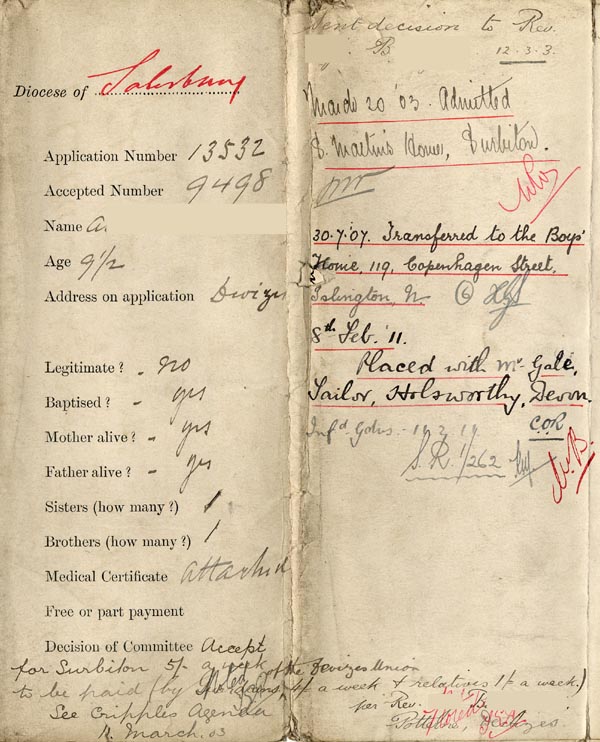 Diocese of Salisbury
Application Number 13532
Accepted Number 9498
Name A.
Age 9½
Address on application Devizes
Legitimate? - no
Baptised? - yes
Mother alive? - yes
Father alive? - yes
Sisters (how many?) 1
Brothers (how many?) 1
Medical Certificate attached
Free or part payment
Decision of Committee Accept
for Surbiton 5/- a week
to be paid (by of the Devizes Union
4/- a week & relatives 1/- a week.)
See Cripples Agenda
12 March. 03
per Rev. B.
Potterne, Devizes.
Sent decision to Rev.
B. 12.3.3.
March 20 '03. Admitted
S. Martin's Home, Surbiton.
30.7.'07. Transferred to the Boys'
Home, 119, Copenhagen Street,
Islington, N.
8th Feb. '11.
Placed with Mr. Gale,
Tailor, Holsworthy, Devon.
C.O.R.
Inf'd Gdns.
S.R. 1/262